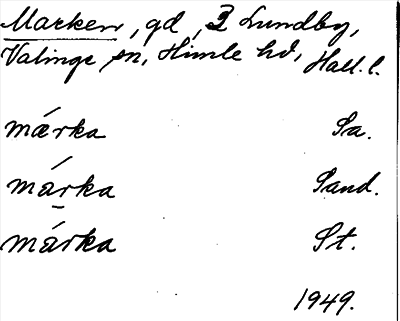 Marken, gd, 2 Lundby,
Valinge sn, Himle hd, Hall. l.
mǽrka Sa.
márka Sand.
márka St.
1949.